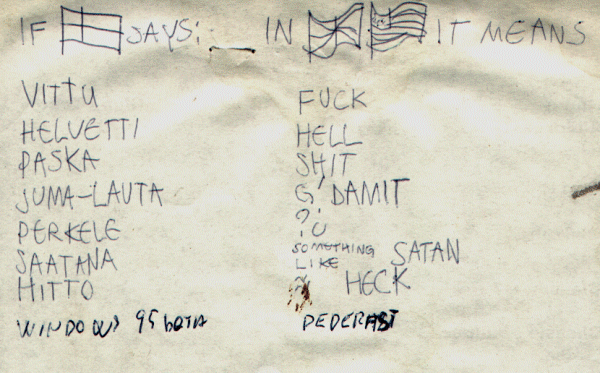 IF SAYS: __ IN IT MEANS
VITTU FUCK
HELVETTI HELL
PASKA SHIT
JUMA-LAUTA G'DAMIT
PERKELE ?!
SAATANA SOMETHING LIKE SATAN
HITTO ? HECK
WINDOWS 95 beta PEDERAST